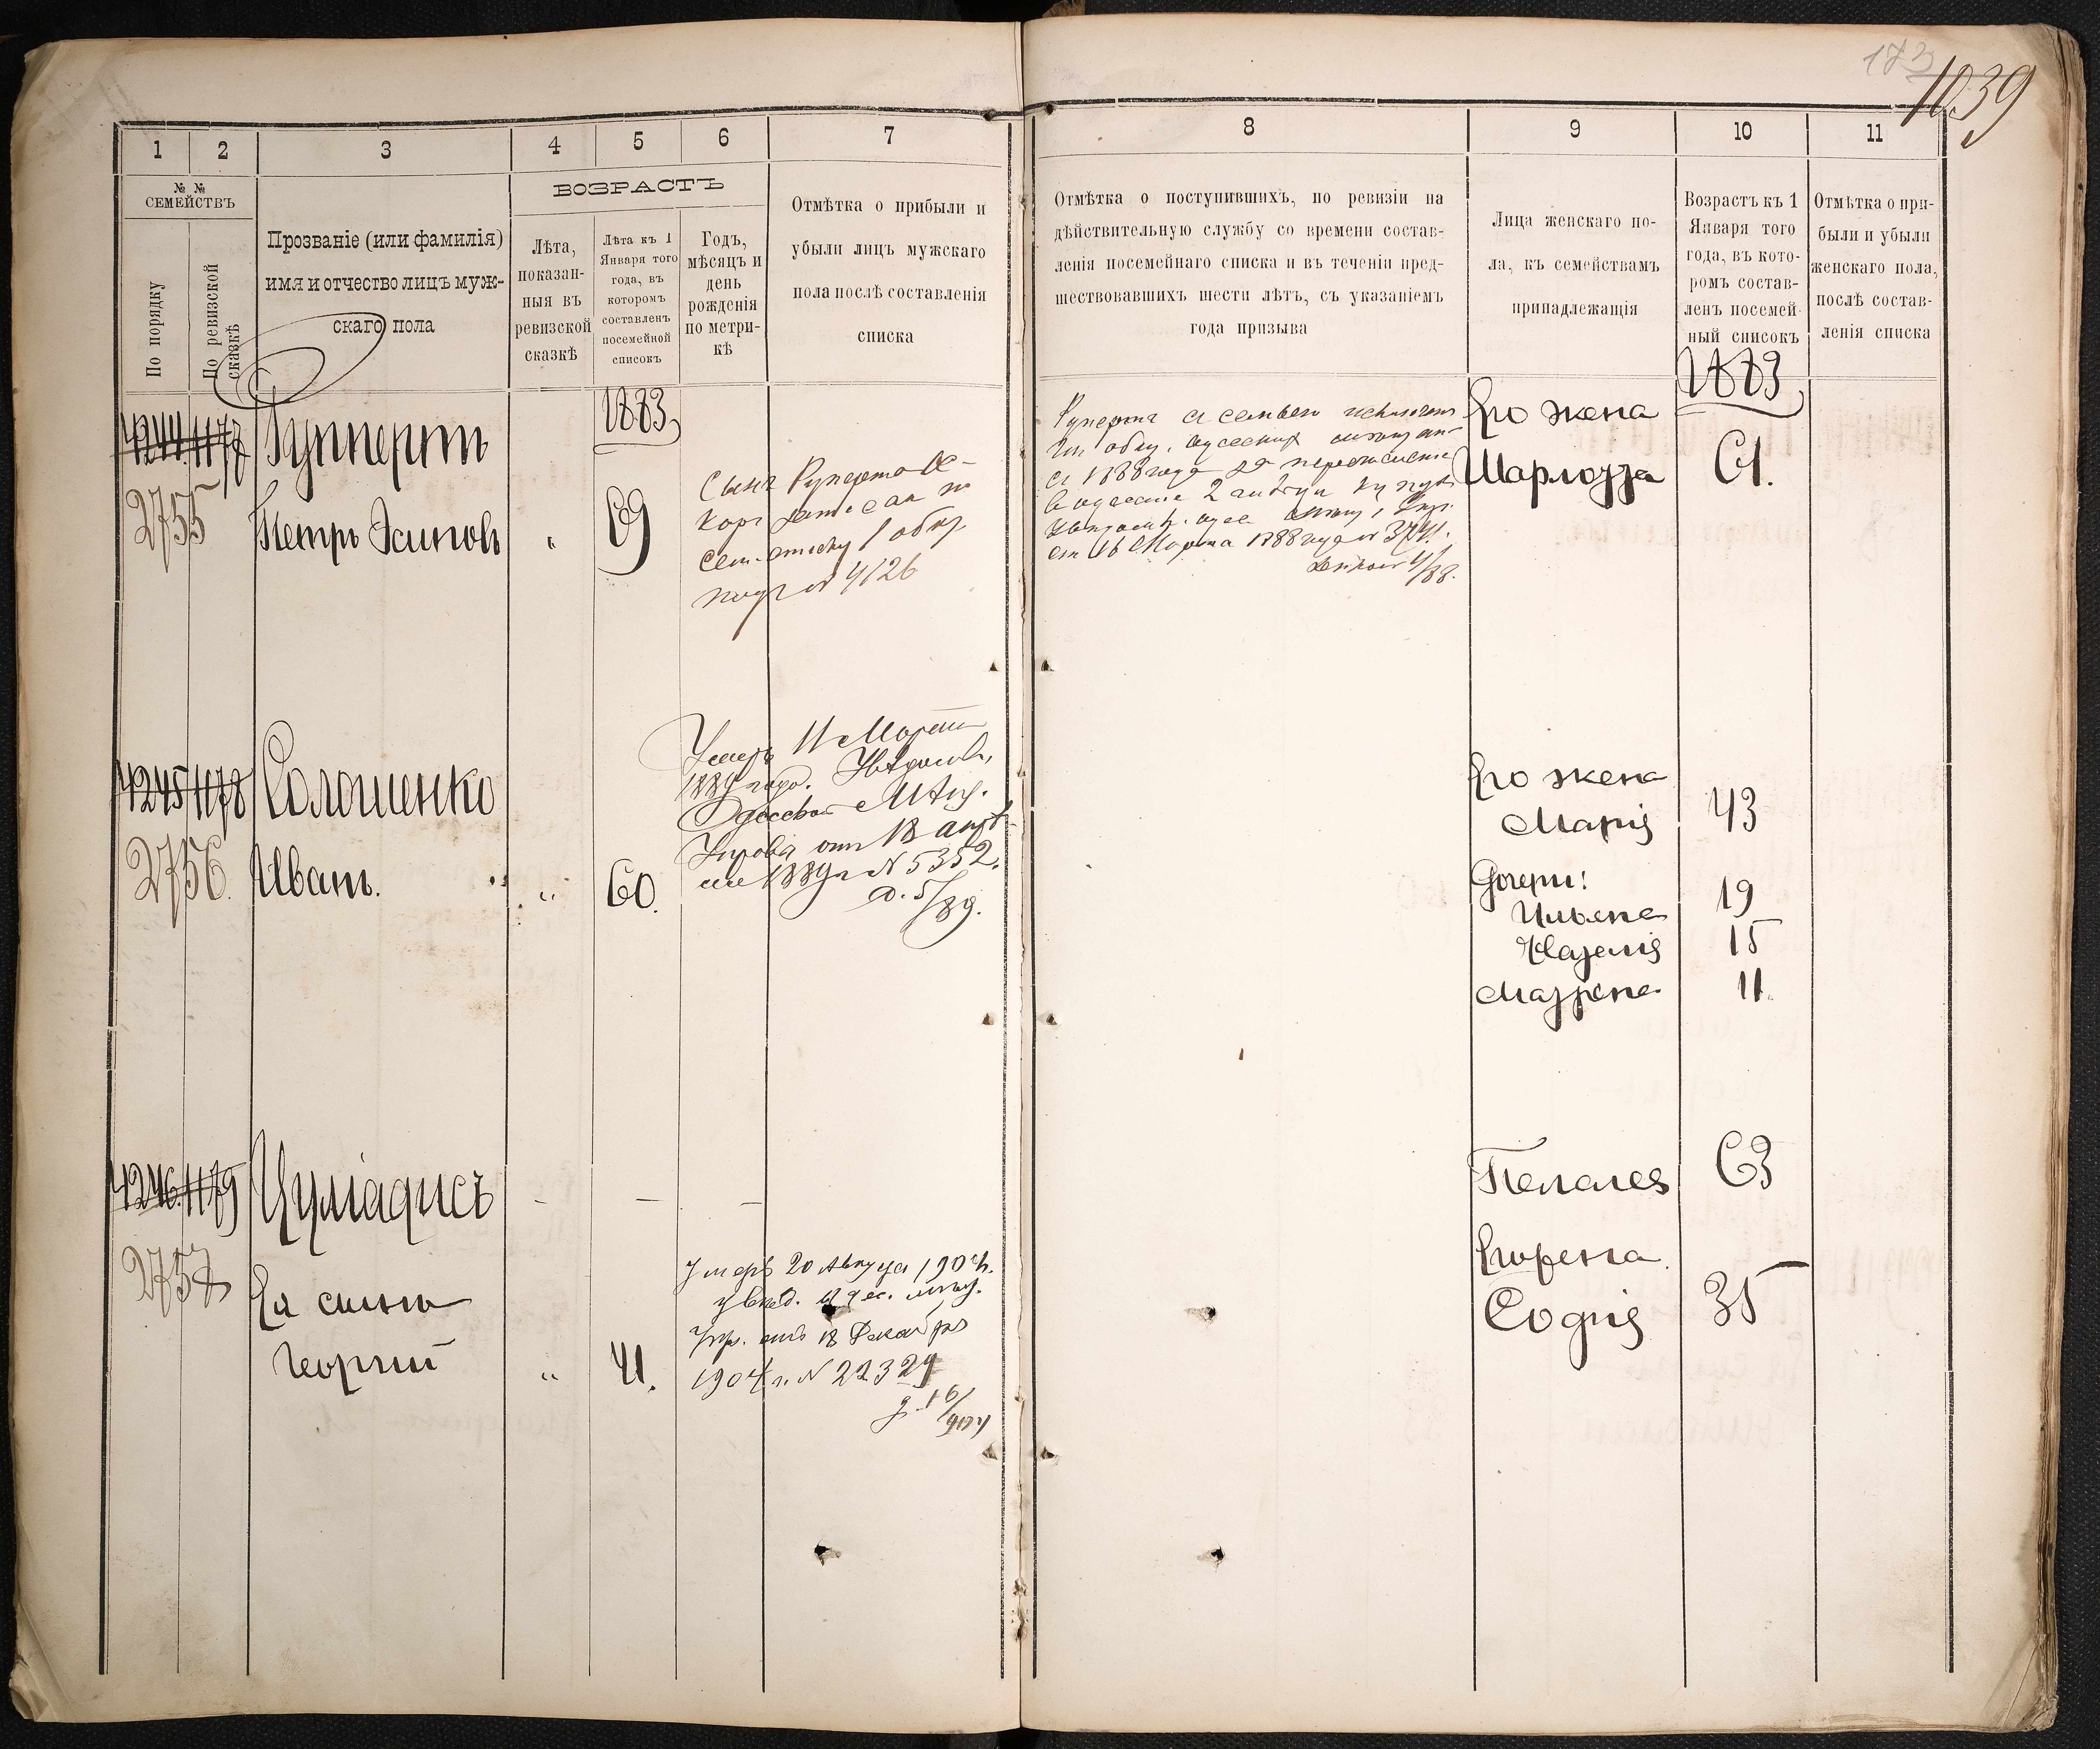 173
1039
1
2
3
4
5
6
7
8
9
10
11
№ № СЕМЕЙСТВЪ
По порядку
По ревизской сказкѣ
Прозваніе (или фамилія)
имя и отчество лицъ муж-
скаго пола
ВОЗРАСТЪ
Лѣта,
показан-
ныя въ
ревизской
сказкѣ
Лѣта къ 1
Января того
года, въ
которомъ
составленъ
посемейной
списокъ
Годъ,
мѣсяцъ и
день
рожденія
по метри-
кѣ
Отмѣтка о прибыли и
убыли лицъ мужскаго
пола послѣ составленія
списка
Отмѣтка о поступившихъ, по ревизіи на
дѣйствительную службу со времени состав-
ленія посемейнаго списка и въ теченіи пред-
шествовавшихъ шести лѣтъ, съ указаніемъ
года призыва
Лица женскаго по-
ла, къ семействамъ
принадлежащія
Возрастъ къ 1
Января того
года, въ кото-
ромъ состав-
ленъ посемей-
ный списокъ
Отмѣтка о при-
были и убыли
женскаго пола,
послѣ состав-
ленія списка
1883
1883
4244 1177 Руппертъ
2755 Петръ Осиповъ 69
Сынъ Руперта Ос-
сем. списку
под № 4126
Рупертъ съ семьею
съ 1888 года
от 16 Марта 1888 года № 3741.
4/88.
Его жена
Шарлотта 61.
4245 1178 Солошенко
2756 Иванъ. " 60.
Умеръ 11 Марта
1889 года. Увѣдомл.
Одесской Мѣщ.
Управы отъ 18 апрѣ-
ля 1889 г. № 5352.
д. 5/89.
Его жена
Марія 43
Дочери:
Ульяна 19
Наталія 15
Матрена 11.
4246 1179 Цуліадисъ - - -
2757 Ея сынъ
Георгій " 41.
Умеръ 20 Августа 1904 г.
увѣд. Одес. мѣщ.
Упр. отъ 18 Декабря
1904 г. № 22329
д. 16/904
Пелагея 63
Софія 35